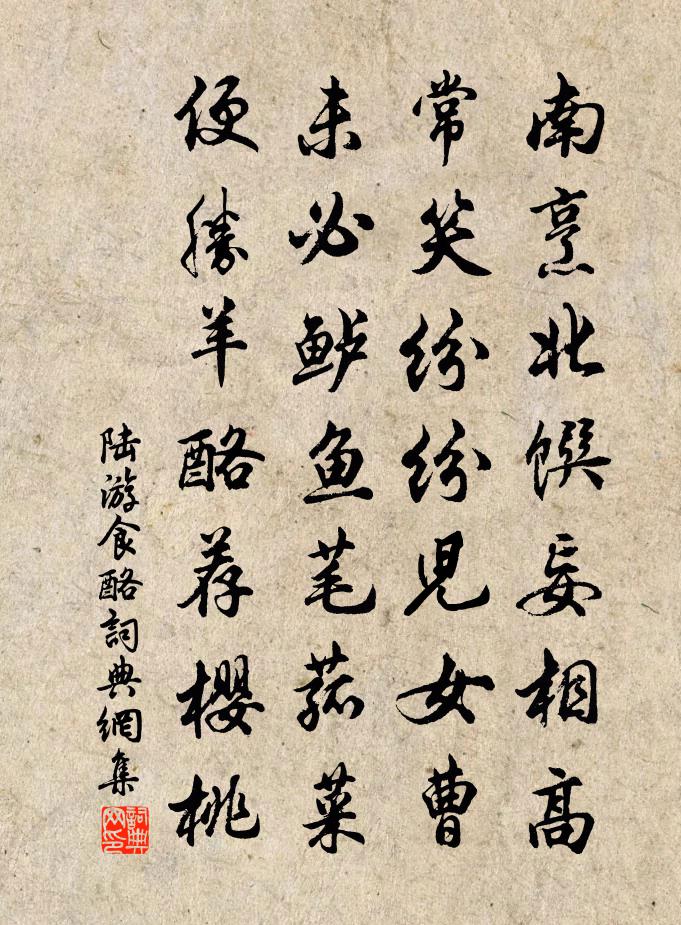 南烹北馔妄相高
常笑纷纷儿女曹
未必鲈鱼芼菰菜
便勝羊酪荐樱桃
陆游食酪詞典網集
詞典网印